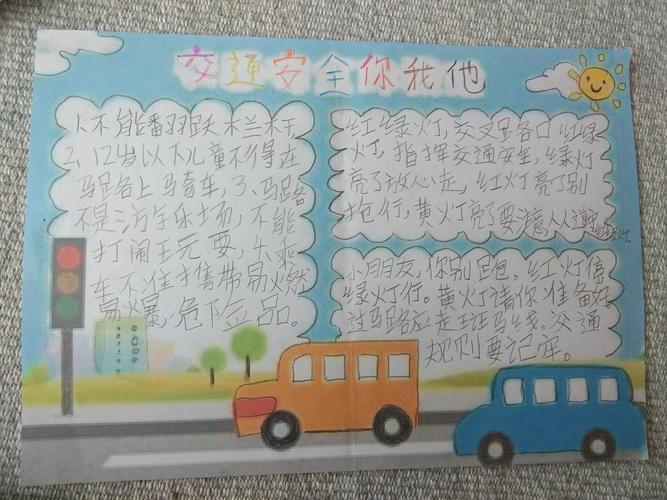 交通安全你我他
1、不能番羽跃栏杆
2、12岁以下儿童不得在
马路上骑车，3、马路
不是游乐场，不能
打闹玩耍，4、乘
车不准携带易燃
易爆危险品。
红绿灯，交叉路口红绿
灯，指挥交通安全，绿灯
亮了放心走，红灯亮了别
抢行，黄灯亮了要注意，人人
小朋友，你别跑。红灯停
绿灯行。黄灯请你准备好
过马路应走斑马线。交通
规则要记牢。